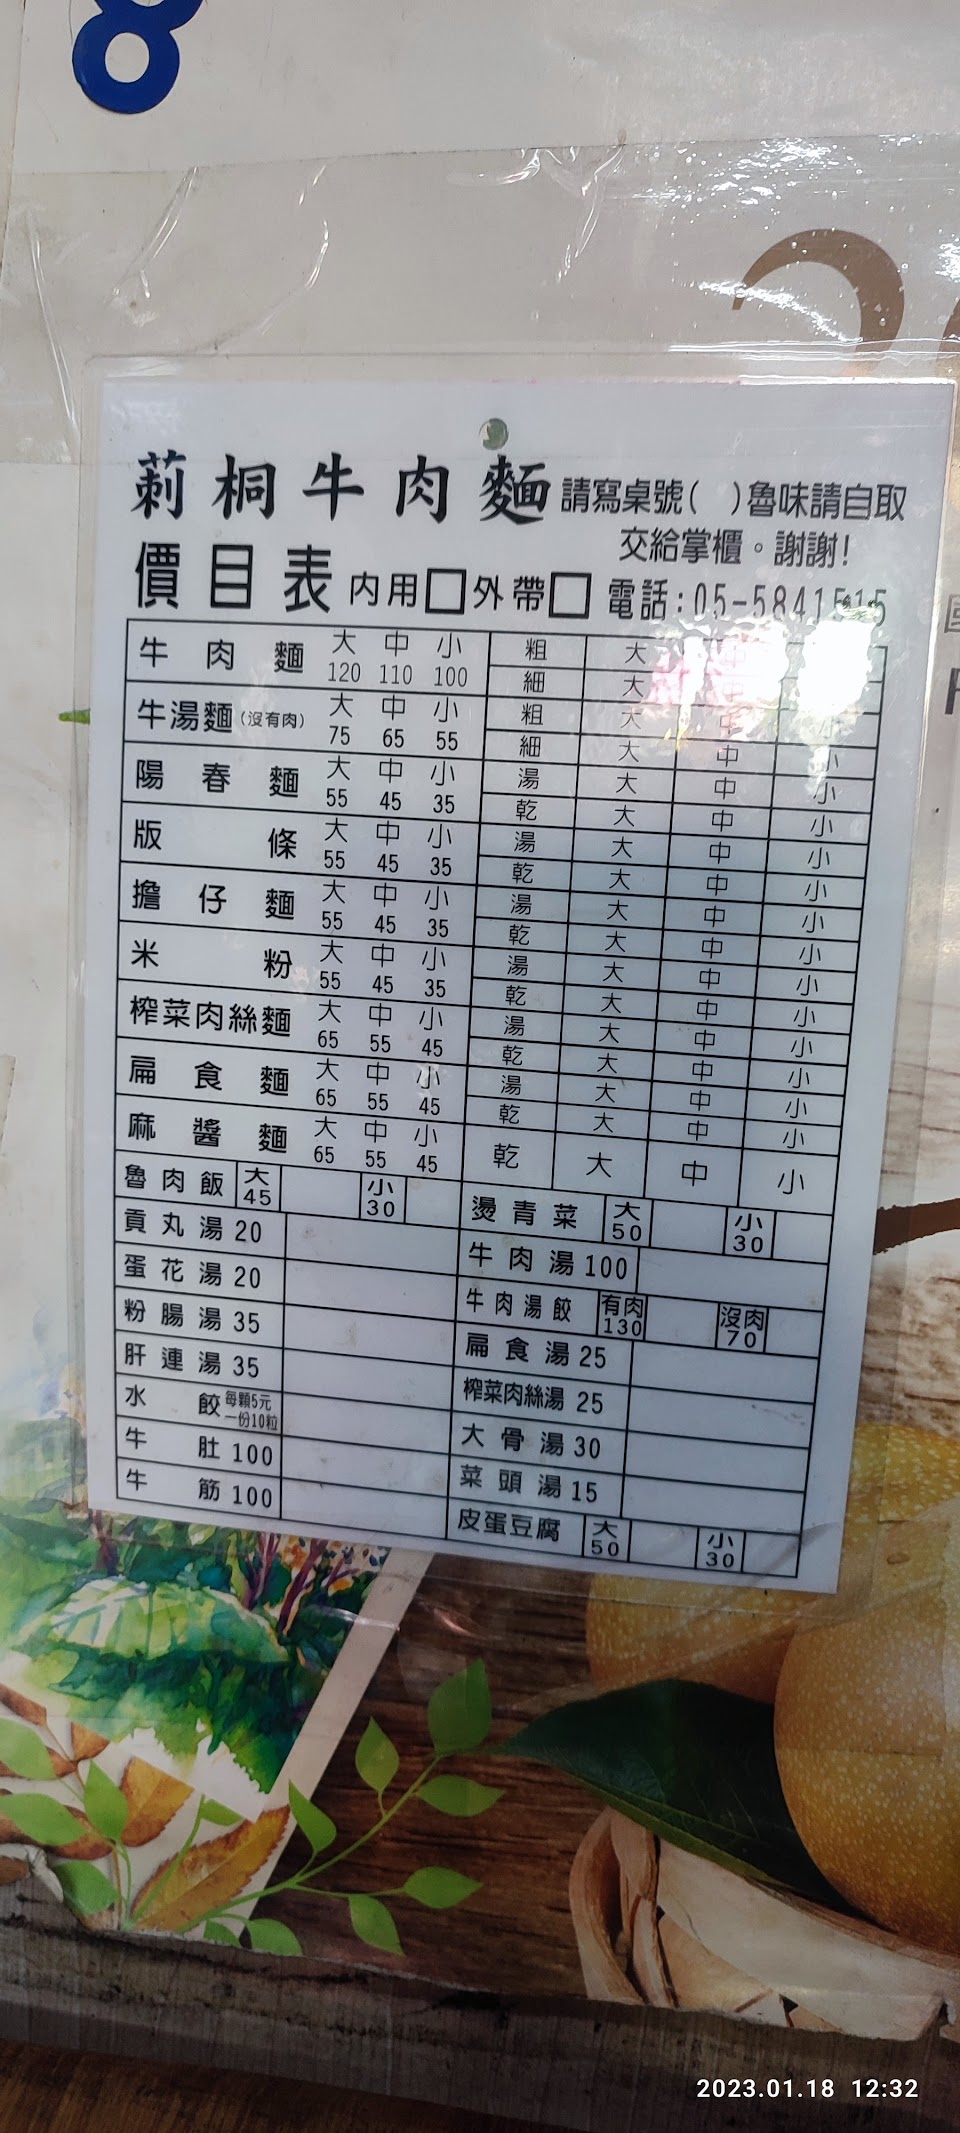 8
莿桐牛肉麵 請寫桌號( )魯味請自取
交給掌櫃。謝謝!
價目表 內用□外帶□ 電話:05-5841515
牛肉麵 大 120 中 110 小 100 粗 大 中
細 大 中
牛湯麵(沒有肉) 大 75 中 65 小 55 粗 大 中 小
細 大 中 小
陽春麵 大 55 中 45 小 35 湯 大 中 小
乾 大 中 小
版條 大 55 中 45 小 35 湯 大 中 小
乾 大 中 小
擔仔麵 大 55 中 45 小 35 湯 大 中 小
乾 大 中 小
米粉 大 55 中 45 小 35 湯 大 中 小
乾 大 中 小
榨菜肉絲麵 大 65 中 55 小 45 湯 大 中 小
乾 大 中 小
扁食麵 大 65 中 55 小 45 湯 大 中 小
乾 大 中 小
麻醬麵 大 65 中 55 小 45 乾 大 中 小
魯肉飯 大 45 小 30
貢丸湯 20
蛋花湯 20
粉腸湯 35
肝連湯 35
水餃 每顆5元 一份10粒
牛肚 100
牛筋 100
燙青菜 大 50 小 30
牛肉湯 100
牛肉湯餃 有肉 130 沒肉 70
扁食湯 25
榨菜肉絲湯 25
大骨湯 30
菜頭湯 15
皮蛋豆腐 大 50 小 30
2023.01.18 12:32